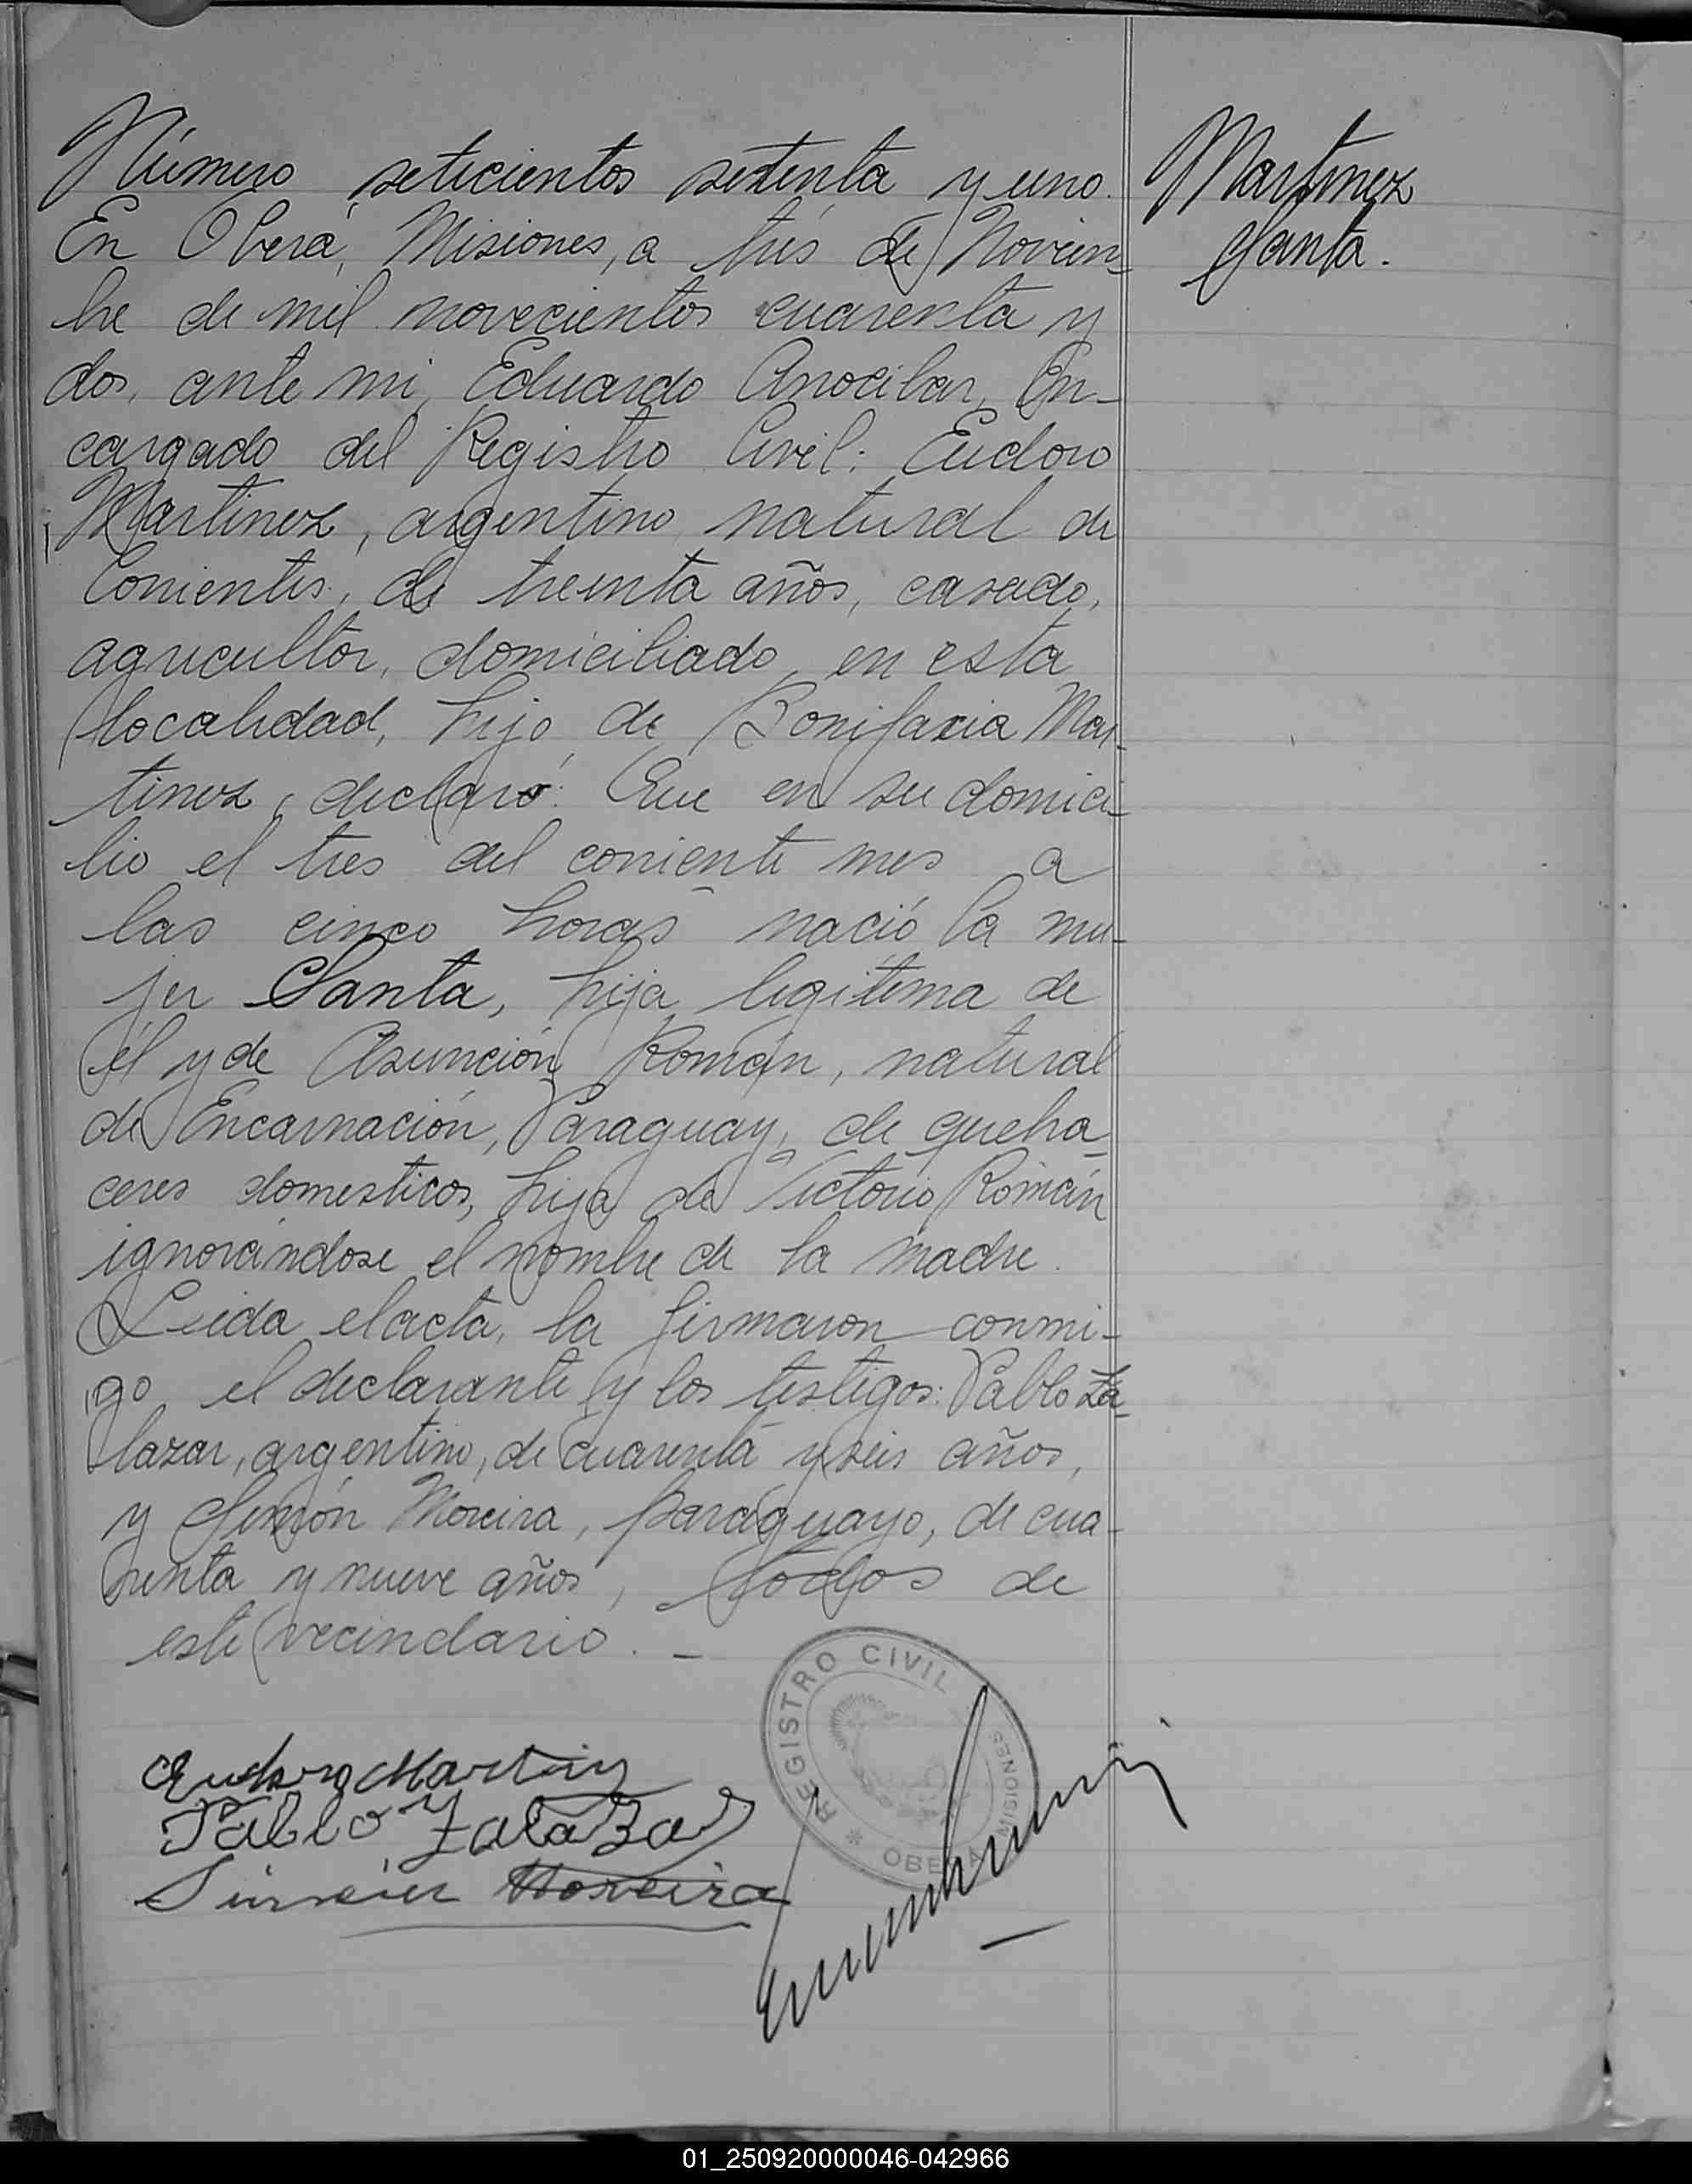 Número seticientos setenta y uno.
Martinez
Santa.
En Oberá, Misiones, a tres de Noviem-
bre de mil novecientos cuarenta y
dos, ante mi, Eduardo Anocibar, En-
cargado del Registro Civil: Eudoro
Martinez, argentino, natural de
Corrientes, de treinta años, casado,
agricultor, domiciliado en esta
localidad, hijo de Bonifacia Mar-
tinez, declaró: Que en su domici-
lio el tres del corriente mes a
las cinco horas nació la mu-
jer Santa, hija legitima de
él y de Asunción Román, natural
de Encarnación, Paraguay, de queha-
ceres domesticos, hija de Victorio Román
ignorándose el nombre de la madre.
Leida el acta, la firmaron conmi-
go el declarante y los testigos: Pablo Za-
lazar, argentino, de cuarenta y seis años,
y Simón Moreira, paraguayo, de cua-
renta y nueve años, todos de
este vecindario. —
REGISTRO CIVIL
OBERÁ MISIONES
Eudoro Martinez
Pablo Zalazar
Moreira
01_250920000046-042966